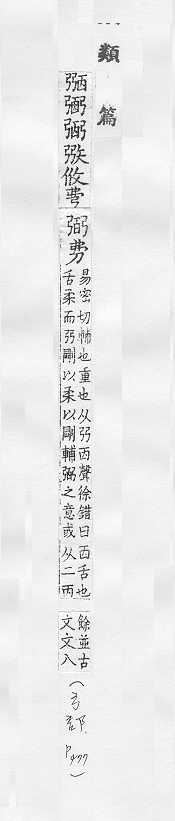 類篇
弼
易密切輔也重也从弜㐁聲徐鍇曰㐁舌也餘並古
舌柔而弜剛以柔以剛輔弼之意或从二丙文文入
（弓部 P477）